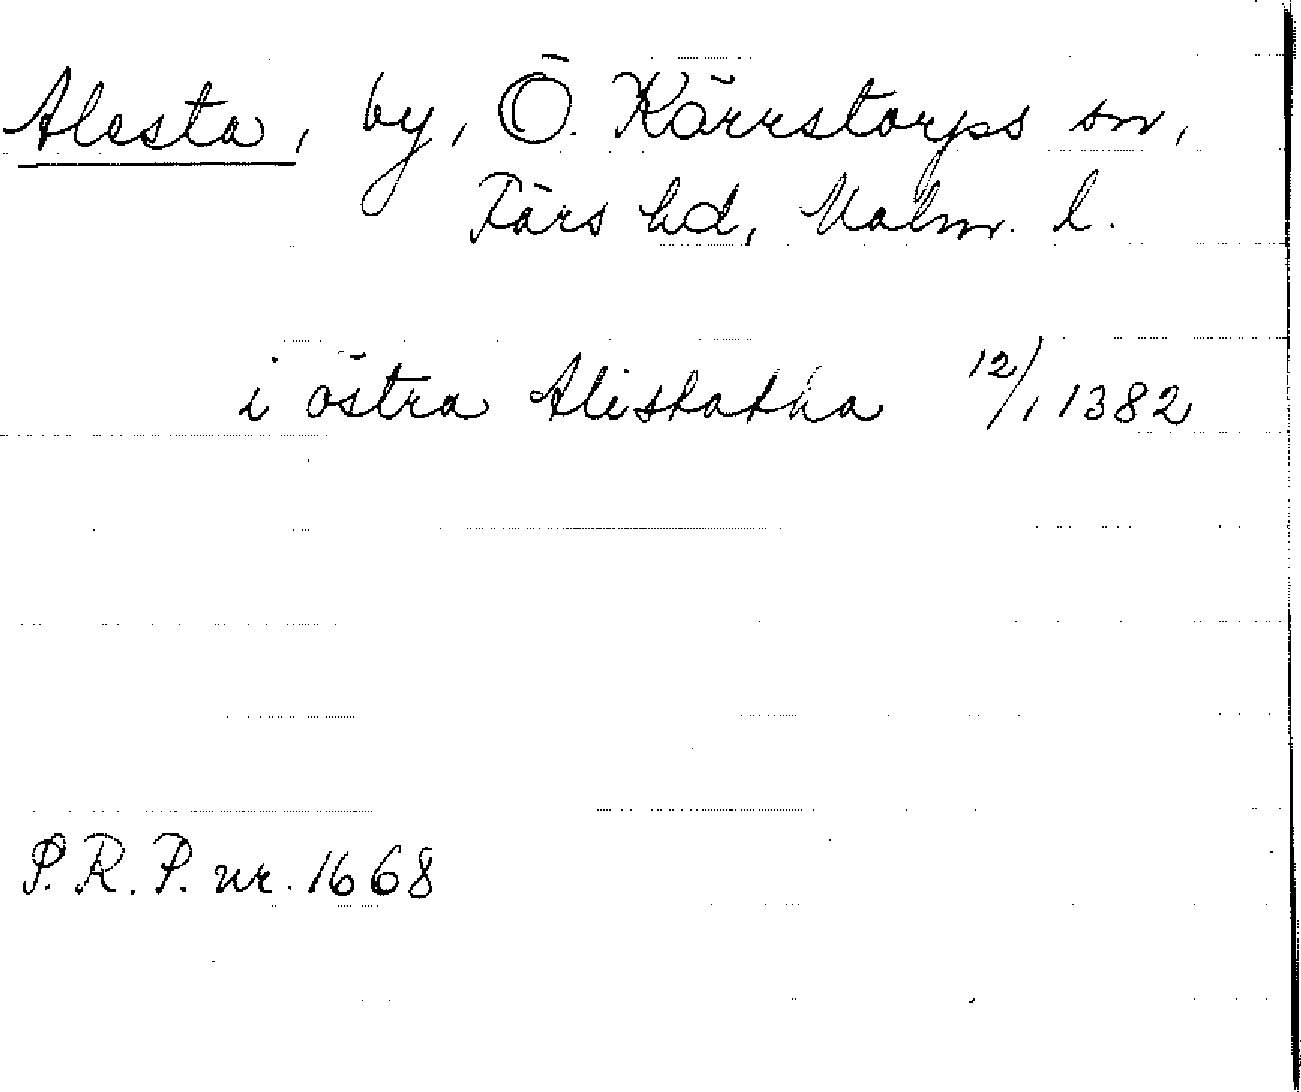 Alesta, by, Ö. Kärrstorps sn,
Färs hd, Malm. l.
i östra Alistatha 12/1 1382
P. R. P. nr. 1668